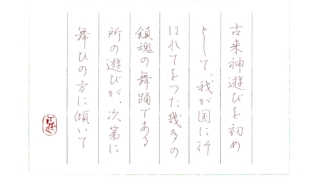 古来神遊びを初め
として、我が国に行
はれてをつた幾多の
鎮魂の舞踊である
所の遊びが、次第に
舞ひの方に傾いて